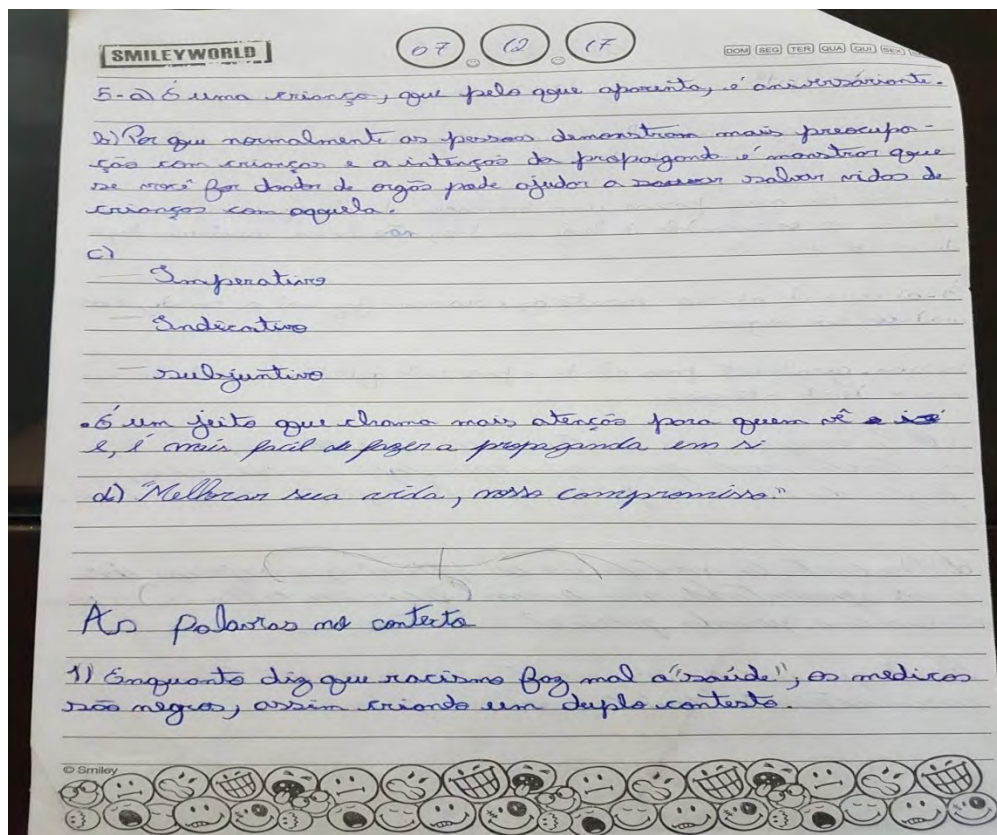 SMILEYWORLD 07 12 17 DOM SEG TER QUA QUI SEX
5-a) É uma criança, que pelo que aparenta, é aniversáriante.
b) Por que normalmente as pessoas demonstram mais preocupa-
ção com crianças e a intenção da propaganda é monstrar que
se você for doador de orgãos pode ajudar a salvar vidas de
crianças com aquela.
c)
Imperativo
Indicativo
subjuntivo
. É um jeito que chama mais atenção para quem vê
e, é mais facil de fazer a propaganda em si
d) "Melhorar sua vida, nosso compromisso."
As palavras no contexto
1) Enquanto diz que racismo faz mal a "saúde", os medicos
são negros, assim criando um duplo contexto.
© Smiley